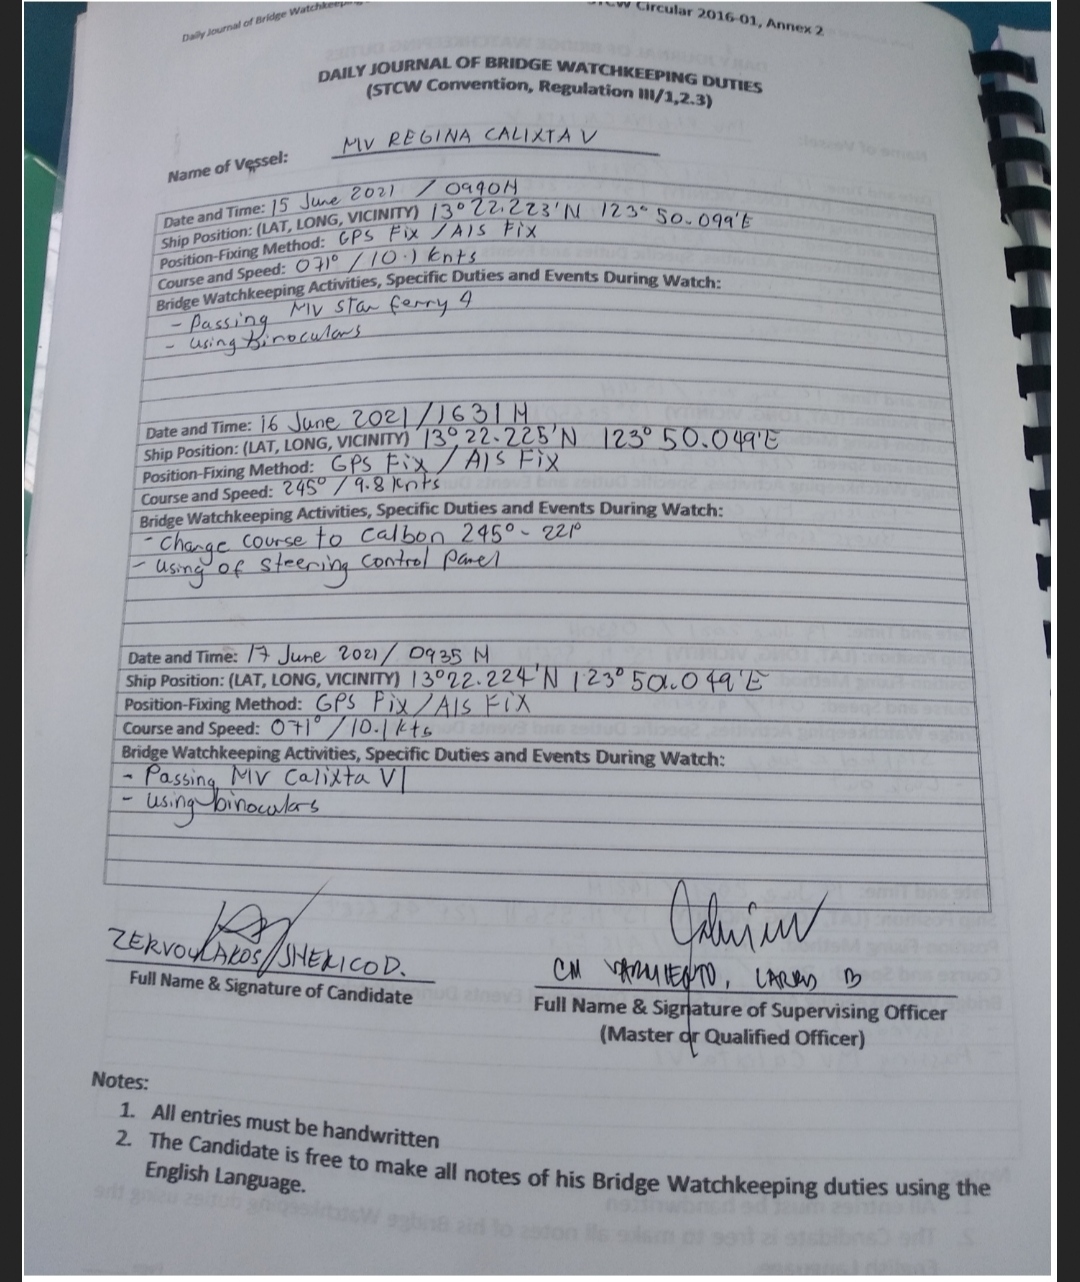 Daily Journal of Bridge Watchkeeping
STCW Circular 2016-01, Annex 2
DAILY JOURNAL OF BRIDGE WATCHKEEPING DUTIES
(STCW Convention, Regulation III/1,2.3)
Name of Vessel: MV REGINA CALIXTA V
Date and Time: 15 June 2021 / 0940H
Ship Position: (LAT, LONG, VICINITY) 13° 22.223'N 123° 50.099'E
Position-Fixing Method: GPS Fix / AIS Fix
Course and Speed: 071° / 10.1 knts
Bridge Watchkeeping Activities, Specific Duties and Events During Watch:
- Passing MV Star ferry 4
- using binoculars
Date and Time: 16 June 2021 / 1631 H
Ship Position: (LAT, LONG, VICINITY) 13° 22.225'N 123° 50.049'E
Position-Fixing Method: GPS Fix / AIS Fix
Course and Speed: 245° / 9.8 knts
Bridge Watchkeeping Activities, Specific Duties and Events During Watch:
- Change course to Calbon 245° - 221°
- using of steering control panel
Date and Time: 17 June 2021 / 0935 H
Ship Position: (LAT, LONG, VICINITY) 13°22.224'N 123° 50.049'E
Position-Fixing Method: GPS Fix / AIS Fix
Course and Speed: 071° / 10.1 kts
Bridge Watchkeeping Activities, Specific Duties and Events During Watch:
- Passing MV Calixta VI
- using binoculars
ZERVOULAKOS, SHERICO D.
Full Name & Signature of Candidate
CM
B
Full Name & Signature of Supervising Officer
(Master or Qualified Officer)
Notes:
1. All entries must be handwritten
2. The Candidate is free to make all notes of his Bridge Watchkeeping duties using the
English Language.